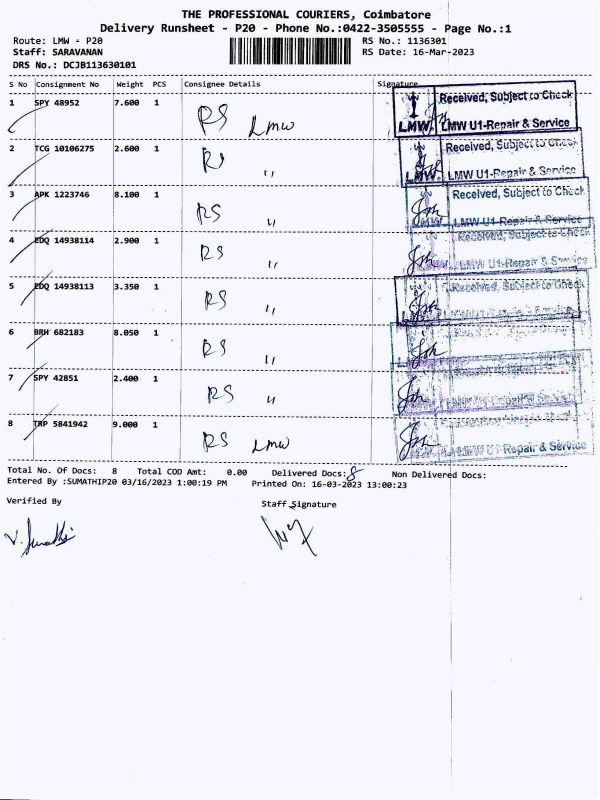 THE PROFESSIONAL COURIERS, Coimbatore
Delivery Runsheet - P20 - Phone No.:0422-3505555 - Page No.:1
Route: LMW - P20 RS No.: 1136301
Staff: SARAVANAN RS Date: 16-Mar-2023
DRS No.: DCJB113630101
S No Consignment No Weight PCS Consignee Details Signature
1 SPY 48952 7.600 1 RS LMW Received, Subject to Check
LMW. LMW U1-Repair & Service
2 TCG 10106275 2.600 1 RS ,, Received, Subject to Check
LMW. LMW U1-Repair & Service
3 APK 1223746 8.100 1 RS ,, Received, Subject to Check
LMW U1-Repair & Service
4 EDQ 14938114 2.900 1 RS ,, Received, Subject to Check
LMW U1-Repair & Service
5 EDQ 14938113 3.350 1 RS ,, Received, Subject to Check
6 BRH 682183 8.050 1 RS ,,
7 SPY 42851 2.400 1 RS ,,
8 TRP 5841942 9.000 1 RS LMW
LMW U1-Repair & Service
Total No. Of Docs: 8 Total COD Amt: 0.00 Delivered Docs: 8 Non Delivered Docs:
Entered By :SUMATHIP20 03/16/2023 1:00:19 PM Printed On: 16-03-2023 13:00:23
Verified By Staff Signature
V. Sumathi